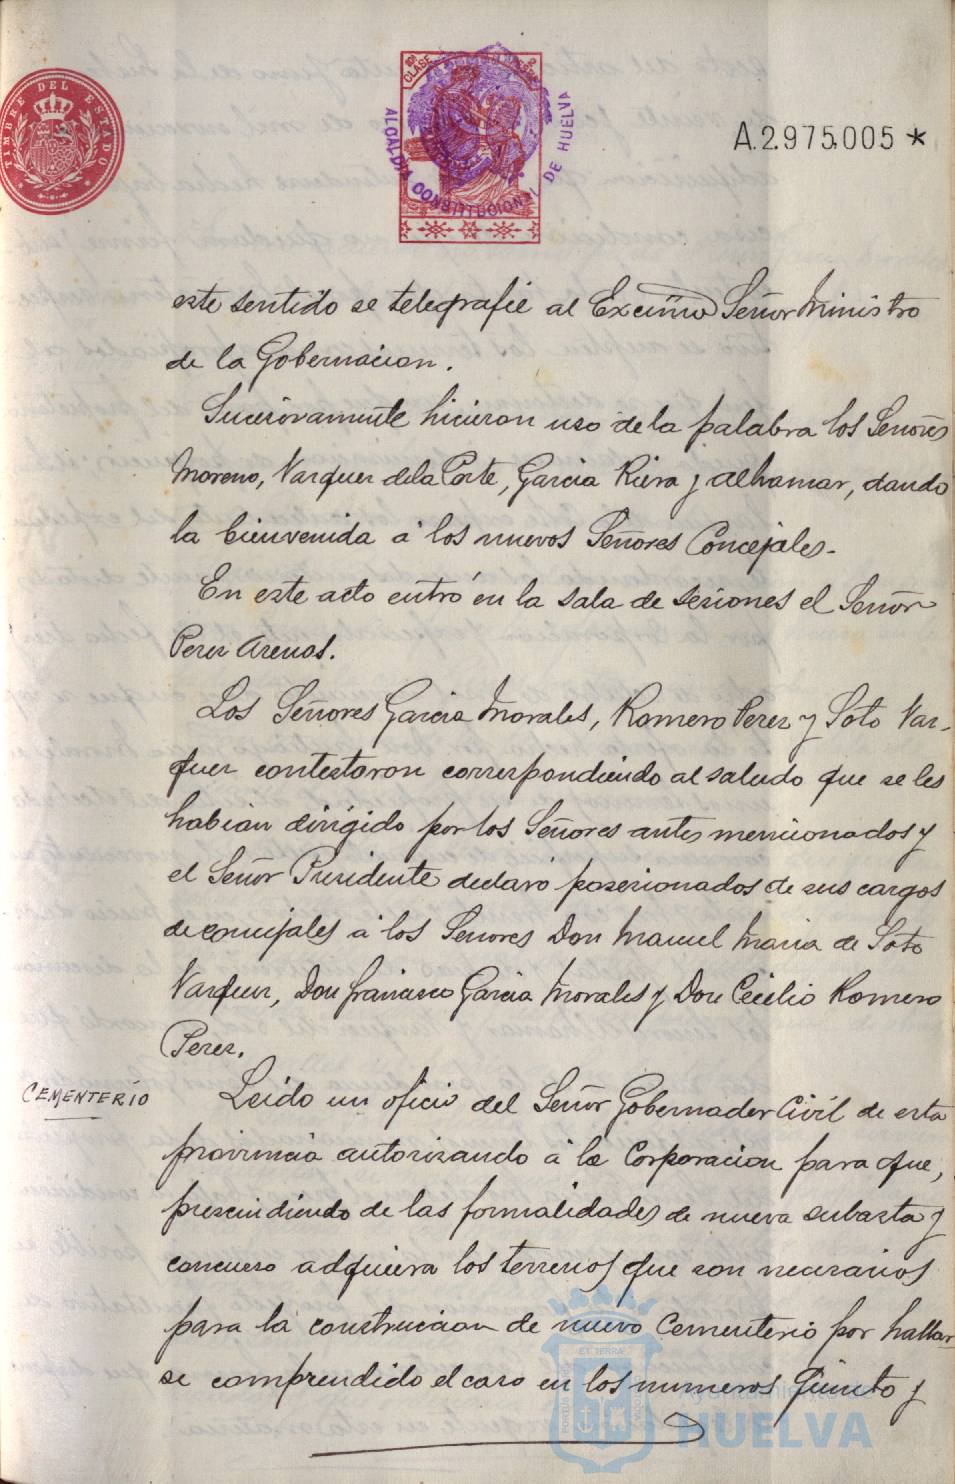 TIMBRE DEL ESTADO
CLASE
ALCALDIA CONSTITUCIONAL DE HUELVA
A.2.975.005 *
este sentido se telegrafie al Excmo Señor Ministro
de la Gobernacion.
Sucesivamente hicieron uso de la palabra los Señores
Moreno, Vazquez de la Corte, Garcia Riera y Alhamar, dando
la bienvenida á los nuevos Señores Concejales.
En este acto entró en la sala de sesiones el Señor
Perez Arenas.
Los Señores Garcia Morales, Romero Perez y Soto Vaz-
quez contestaron correspondiendo al saludo que se les
habian dirigido por los Señores antes mencionados y
el Señor Presidente declaró posesionados de sus cargos
de concejales á los Señores Don Manuel Maria de Soto
Vazquez, Don Francisco Garcia Morales y Don Cecilio Romero
Perez.
CEMENTERIO
Leido un oficio del Señor Gobernador Civil de esta
provincia autorizando á la Corporacion para que,
prescindiendo de las formalidades de nueva subasta y
concurso adquiera los terrenos que son necesarios
para la construccion de nuevo Cementerio por hallar-
se comprendido el caso en los numeros Quinto y
Ayuntamiento de
HUELVA